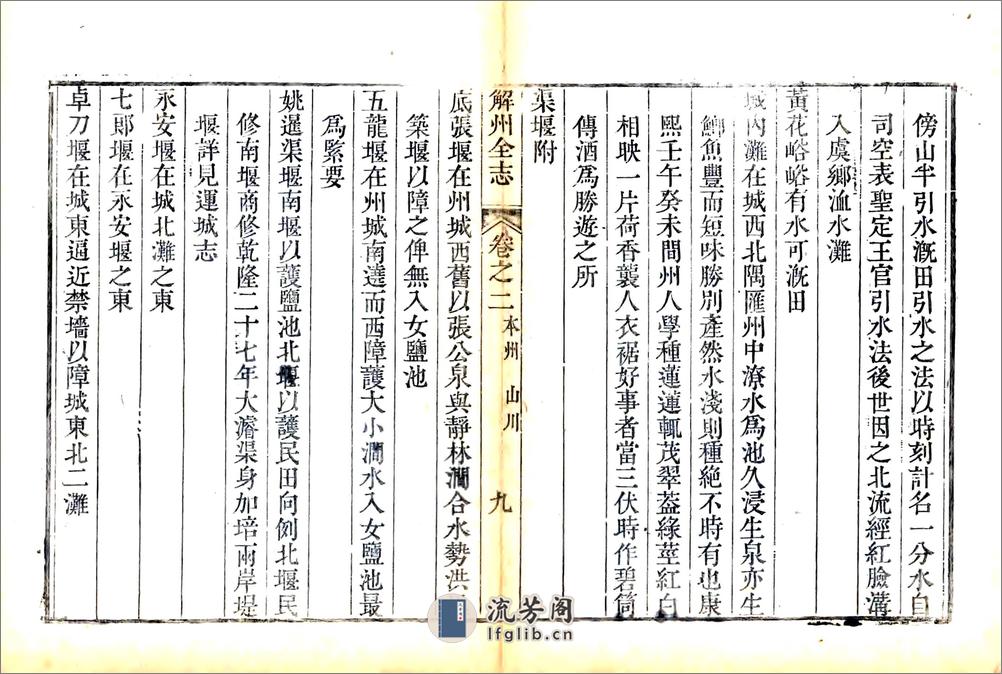 傍山半引水漑田引水之法以時刻計名一分水自
司空表聖定王官引水法後世因之北流經紅臉溝
入虞鄉洫水灘
黃花峪峪有水可漑田
城內灘在城西北隅匯州中潦水爲池久浸生泉亦生
鯽魚豐而短味勝別產然水淺則種絶不時有也康
熙壬午癸未間州人學種蓮蓮輒茂翠葢綠莖紅白
相映一片荷香襲人衣裾好事者當三伏時作碧筒
傳酒爲勝遊之所
渠堰附
解州全志
卷之二
本州 山川
九
底張堰在州城西舊以張公泉與靜林澗合水勢洪
築堰以障之俾無入女鹽池
五龍堰在州城南遶而西障護大小澗水入女鹽池最
爲緊要
姚暹渠堰南堰以護鹽池北堰以護民田向例北堰民
修南堰商修乾隆二十七年大濬渠身加培兩岸堤
堰詳見運城志
永安堰在城北灘之東
七郎堰在永安堰之東
卓刀堰在城東逼近禁墻以障城東北二灘
流芳阁
lfglib.cn